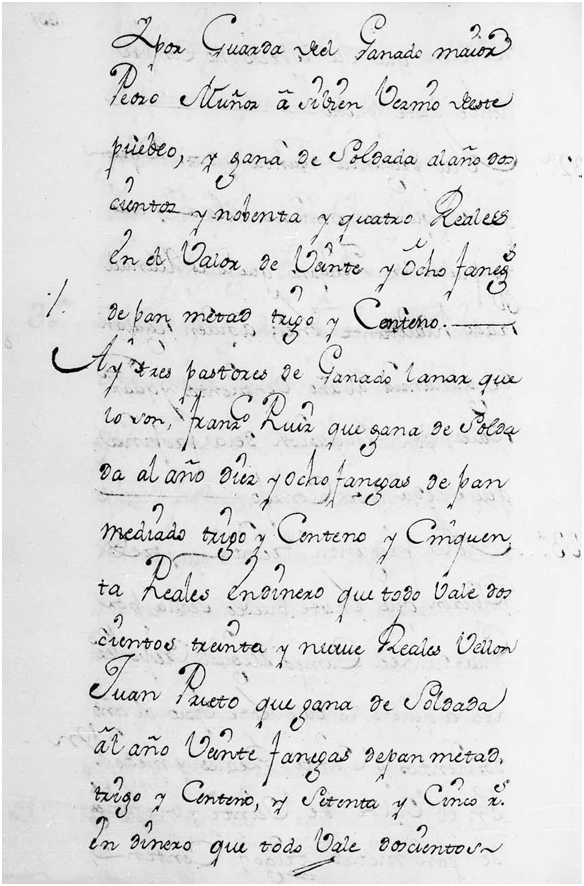 Y por Guarda del Ganado maior
Pedro Muñoz a si bien Vezmo deste
pueblo, y gana de Soldada al año dos
cientos y nobenta y quatro Reales
en el Valor de Veinte y Ocho faneg.s
de pan metad trigo y Centeno.
Ay tres pastores de Ganado lanar que
lo son, Fran.co Ruiz que gana de Solda
da al año diez y Ocho fanegas de pan
mediado trigo y Centeno y Cinquen
ta Reales en dinero que todo Vale dos
cientos treinta y nueve Reales Vellon
Juan Prieto que gana de Soldada
al año Veinte fanegas de pan metad
trigo y Centeno, y Setenta y Cinco r.s
en dinero que todo Vale doscientos